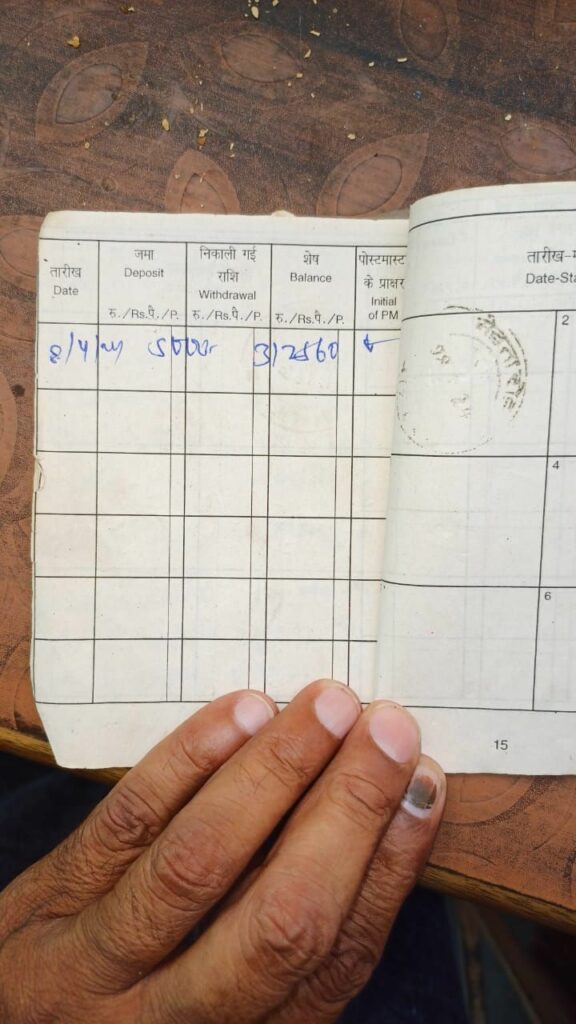 तारीख
Date
जमा
Deposit
रु./Rs.पै./P.
निकाली गई
राशि
Withdrawal
रु./Rs.पै./P.
शेष
Balance
रु./Rs.पै./P.
पोस्टमास्ट
के प्राक्षर
Initial
of PM
तारीख-म
Date-Sta
5000
2
4
6
15